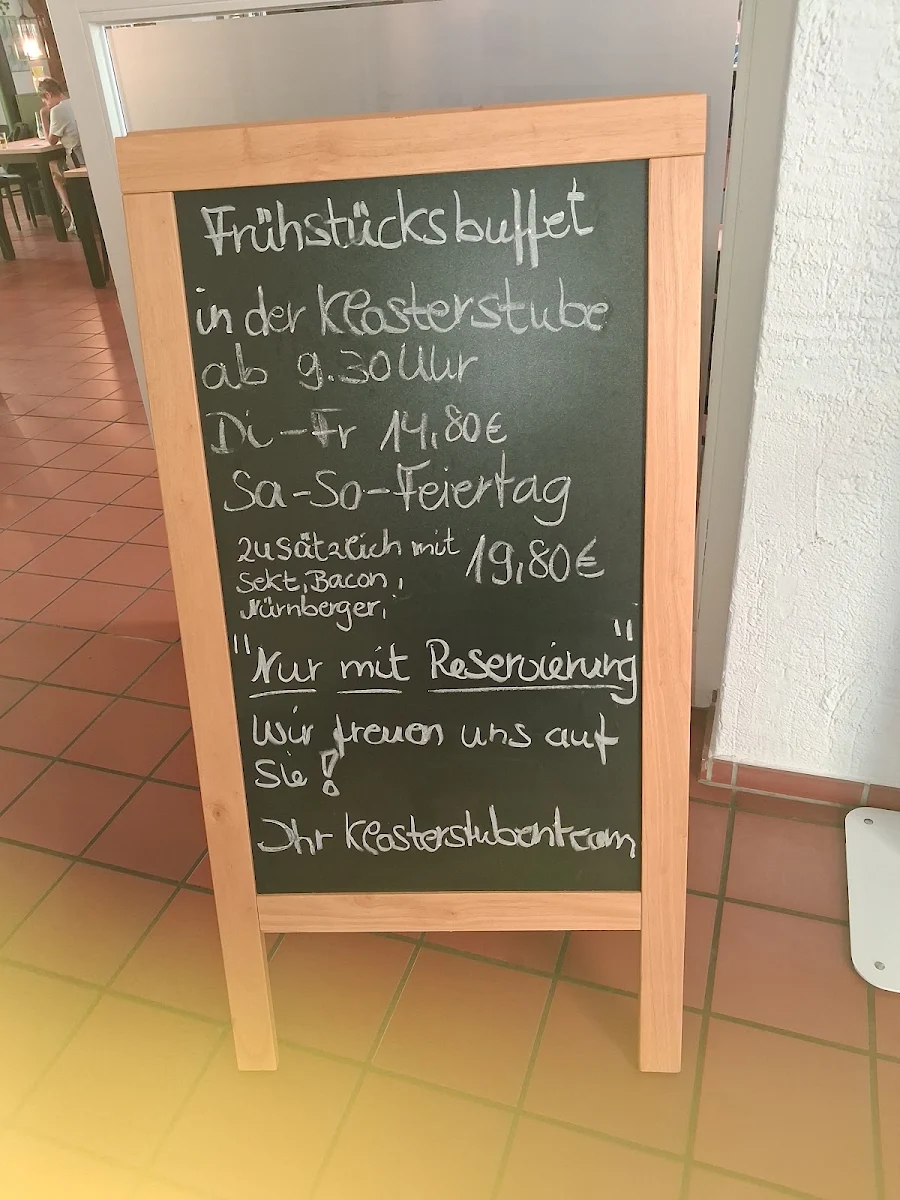 Frühstücksbuffet
in der Klosterstube
ab 9.30 Uhr
Di - Fr 14,80€
Sa - So - Feiertag
zusätzlich mit 19,80€
Sekt, Bacon,
Nürnberger,
"Nur mit Reservierung"
Wir freuen uns auf
Sie!
Ihr Klosterstubenteam